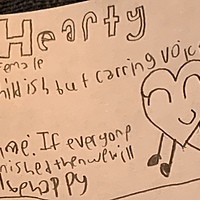 Hearty
Female
hildish but carring voic
me: If everyone
nished then we will
be happy